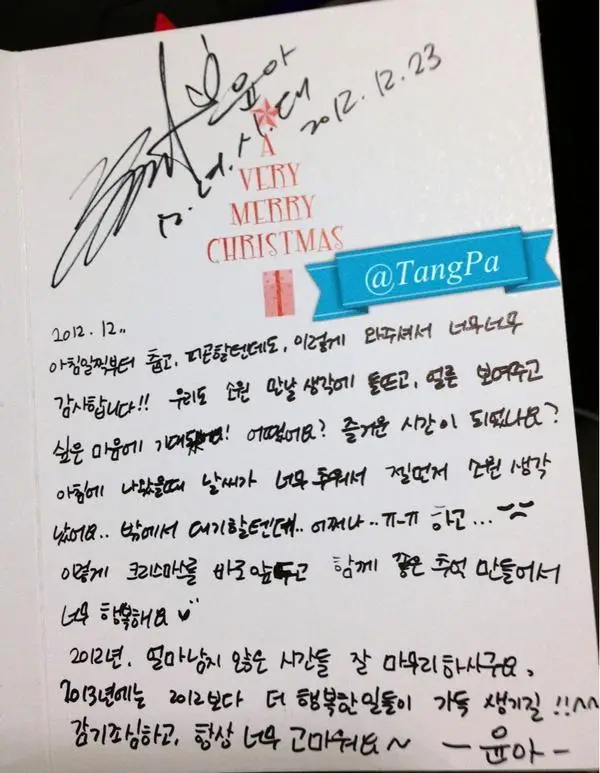 윤아
소.녀.시.대
2012.12.23
A
VERY
MERRY
CHRISTMAS
@TangPa
2012.12..
아침일찍부터 춥고, 피곤할텐데도, 이렇게 와주셔서 너무너무
감사합니다!! 우리도 소원 만날 생각에 들뜨고, 얼른 보여주고
싶은 마음에 기대! 어땠어요? 즐거운 시간이 되었나요?
아침에 나왔을때 날씨가 너무 추워서 젤먼저 소원 생각
났어요.. 밖에서 대기할텐데.. 어쩌나..ㅠ-ㅠ 하고...
이렇게 크리스마스를 바로앞두고 함께 좋은 추억 만들어서
너무 행복해요
2012년, 얼마남지 않은 시간들 잘 마무리하시구요,
2013년에는 2012보다 더 행복한일들이 가득 생기길!!^^
감기조심하고, 항상 너무 고마워요~ - 윤아 -